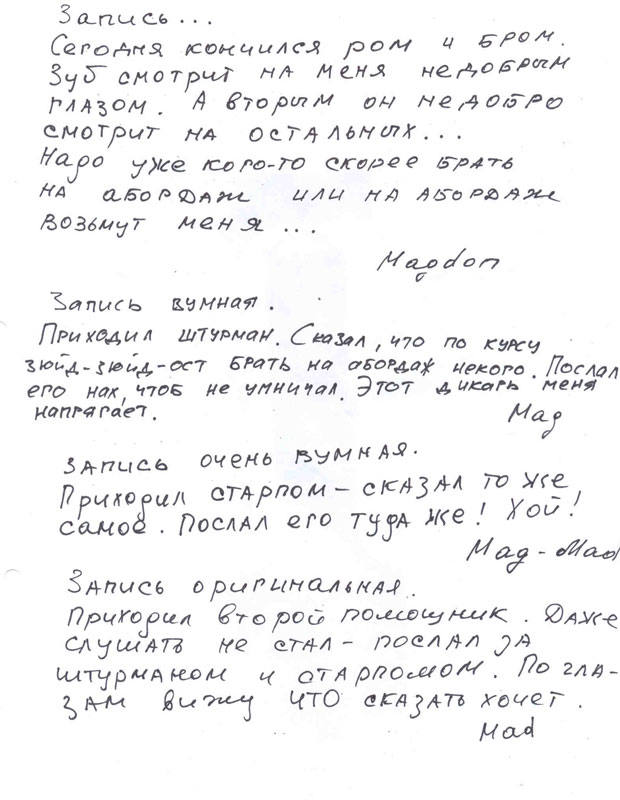 Запись...
Сегодня кончился ром и бром.
Зуб смотрит на меня недобрым
глазом. А вторым он недобро
смотрит на остальных...
Надо уже кого-то скорее брать
на абордаж или на абордаж
возьмут меня...
Magdon
Запись вумная.
Приходил штурман. Сказал, что по курсу
зюйд-зюйд-ост брать на абордаж некого. Послал
его нах, чтоб не умничал. Этот дикарь меня
напрягает.
Mag
Запись очень вумная.
Приходил старпом – сказал то же
самое. Послал его туда же! Хой!
Mag-Mad
Запись оригинальная.
Приходил второй помощник. Даже
слушать не стал – послал за
штурманом и старпомом. По гла-
зам вижу что сказать хочет.
Mad